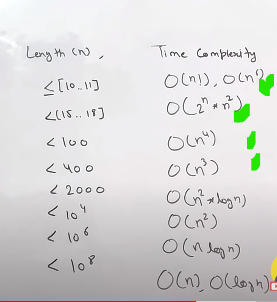 Length (n), Time Complexity
≤ [10..11] O(n!), O(n⁶)
≤ (15..18] O(2ⁿ * n²)
< 100 O(n⁴)
< 400 O(n³)
< 2000 O(n² * logn)
< 10⁴ O(n²)
< 10⁶ O(n logn)
< 10⁸ O(n), O(logn)